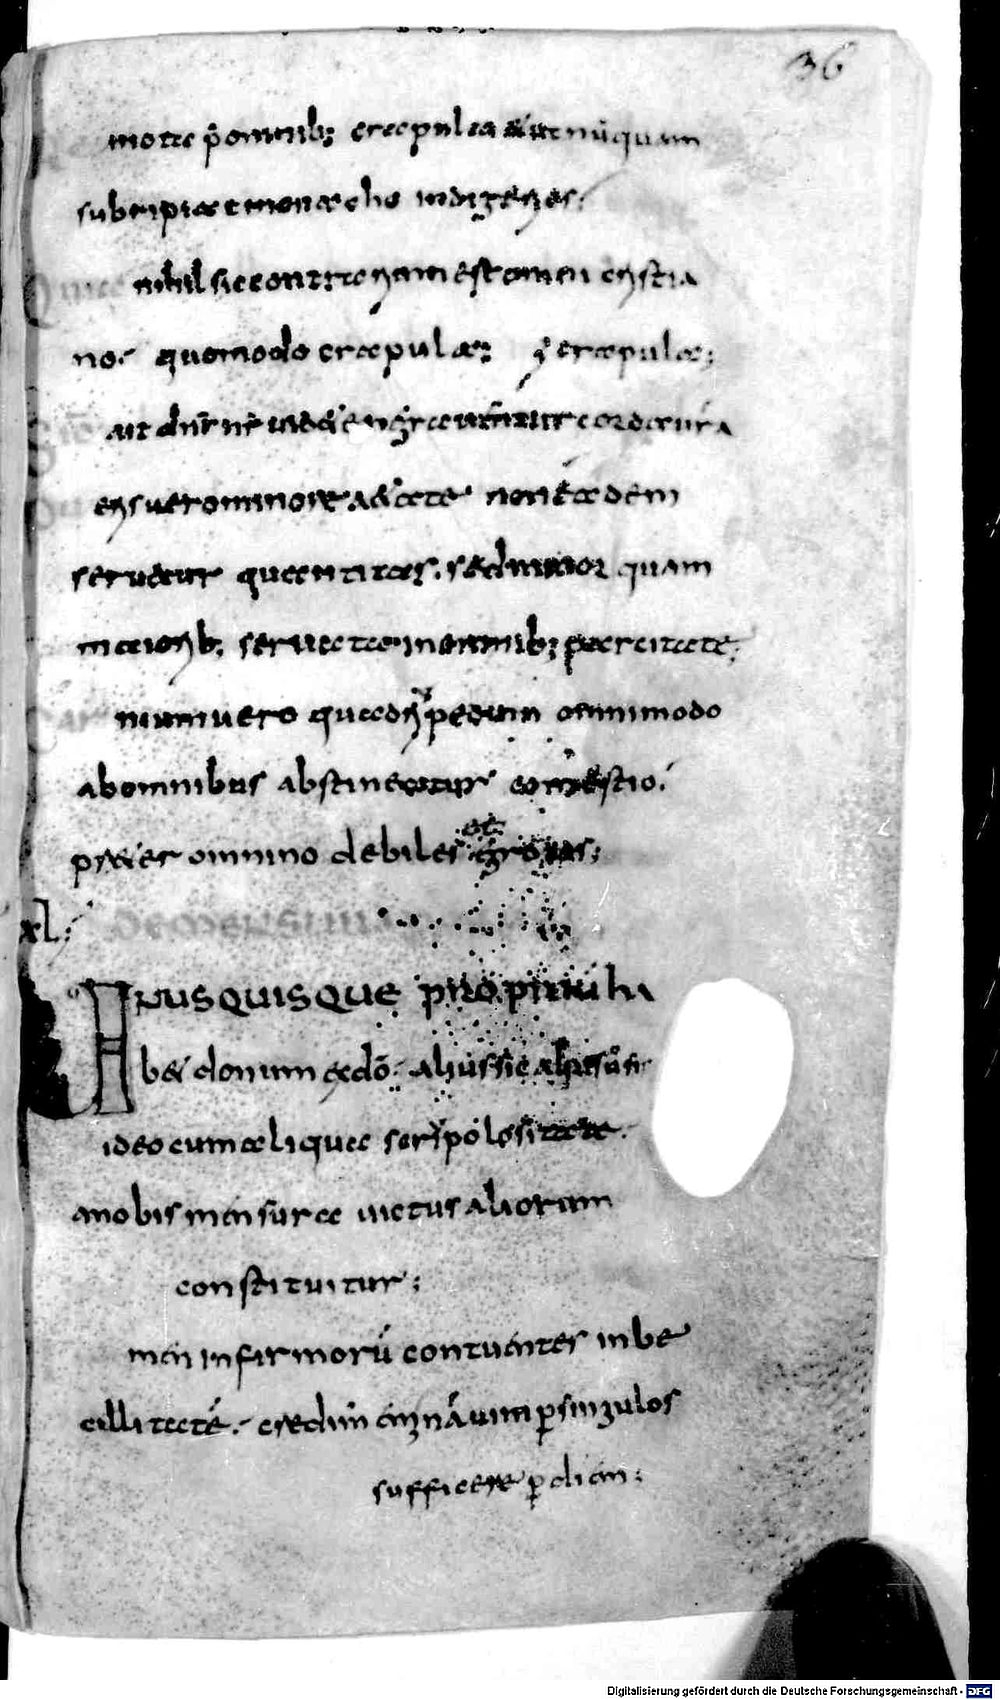 36
mota p̄ omnib; crapula & ut nūquam
subripiat monacho indigeries;
nihil sic contrarium est omni christia
no quomodo crapula;
ait dn̄s nr̄ uidete ne grauentur corda ur̄a
pueris uero minore aetate non eadem
seruetur quantitas. sed minor quam
maiorib; seruata in omnib; parcitate;
carnium uero quadrupedum omnimodo
abomnibus abstineatur comestio.
praeter omnino debiles et egrotos;
xl;
de mensura
Unusquisque propriū ha
bet donum ex dō. alius sic alius sic
ideo cum aliqua scrupolositate
anobis mensura uictus aliorum
constituitur;
men infirmorū contuentes inbe
cillitatē. credimus
uini p singulos
sufficere p diem;
Digitalisierung gefördert durch die Deutsche Forschungsgemeinschaft - DFG